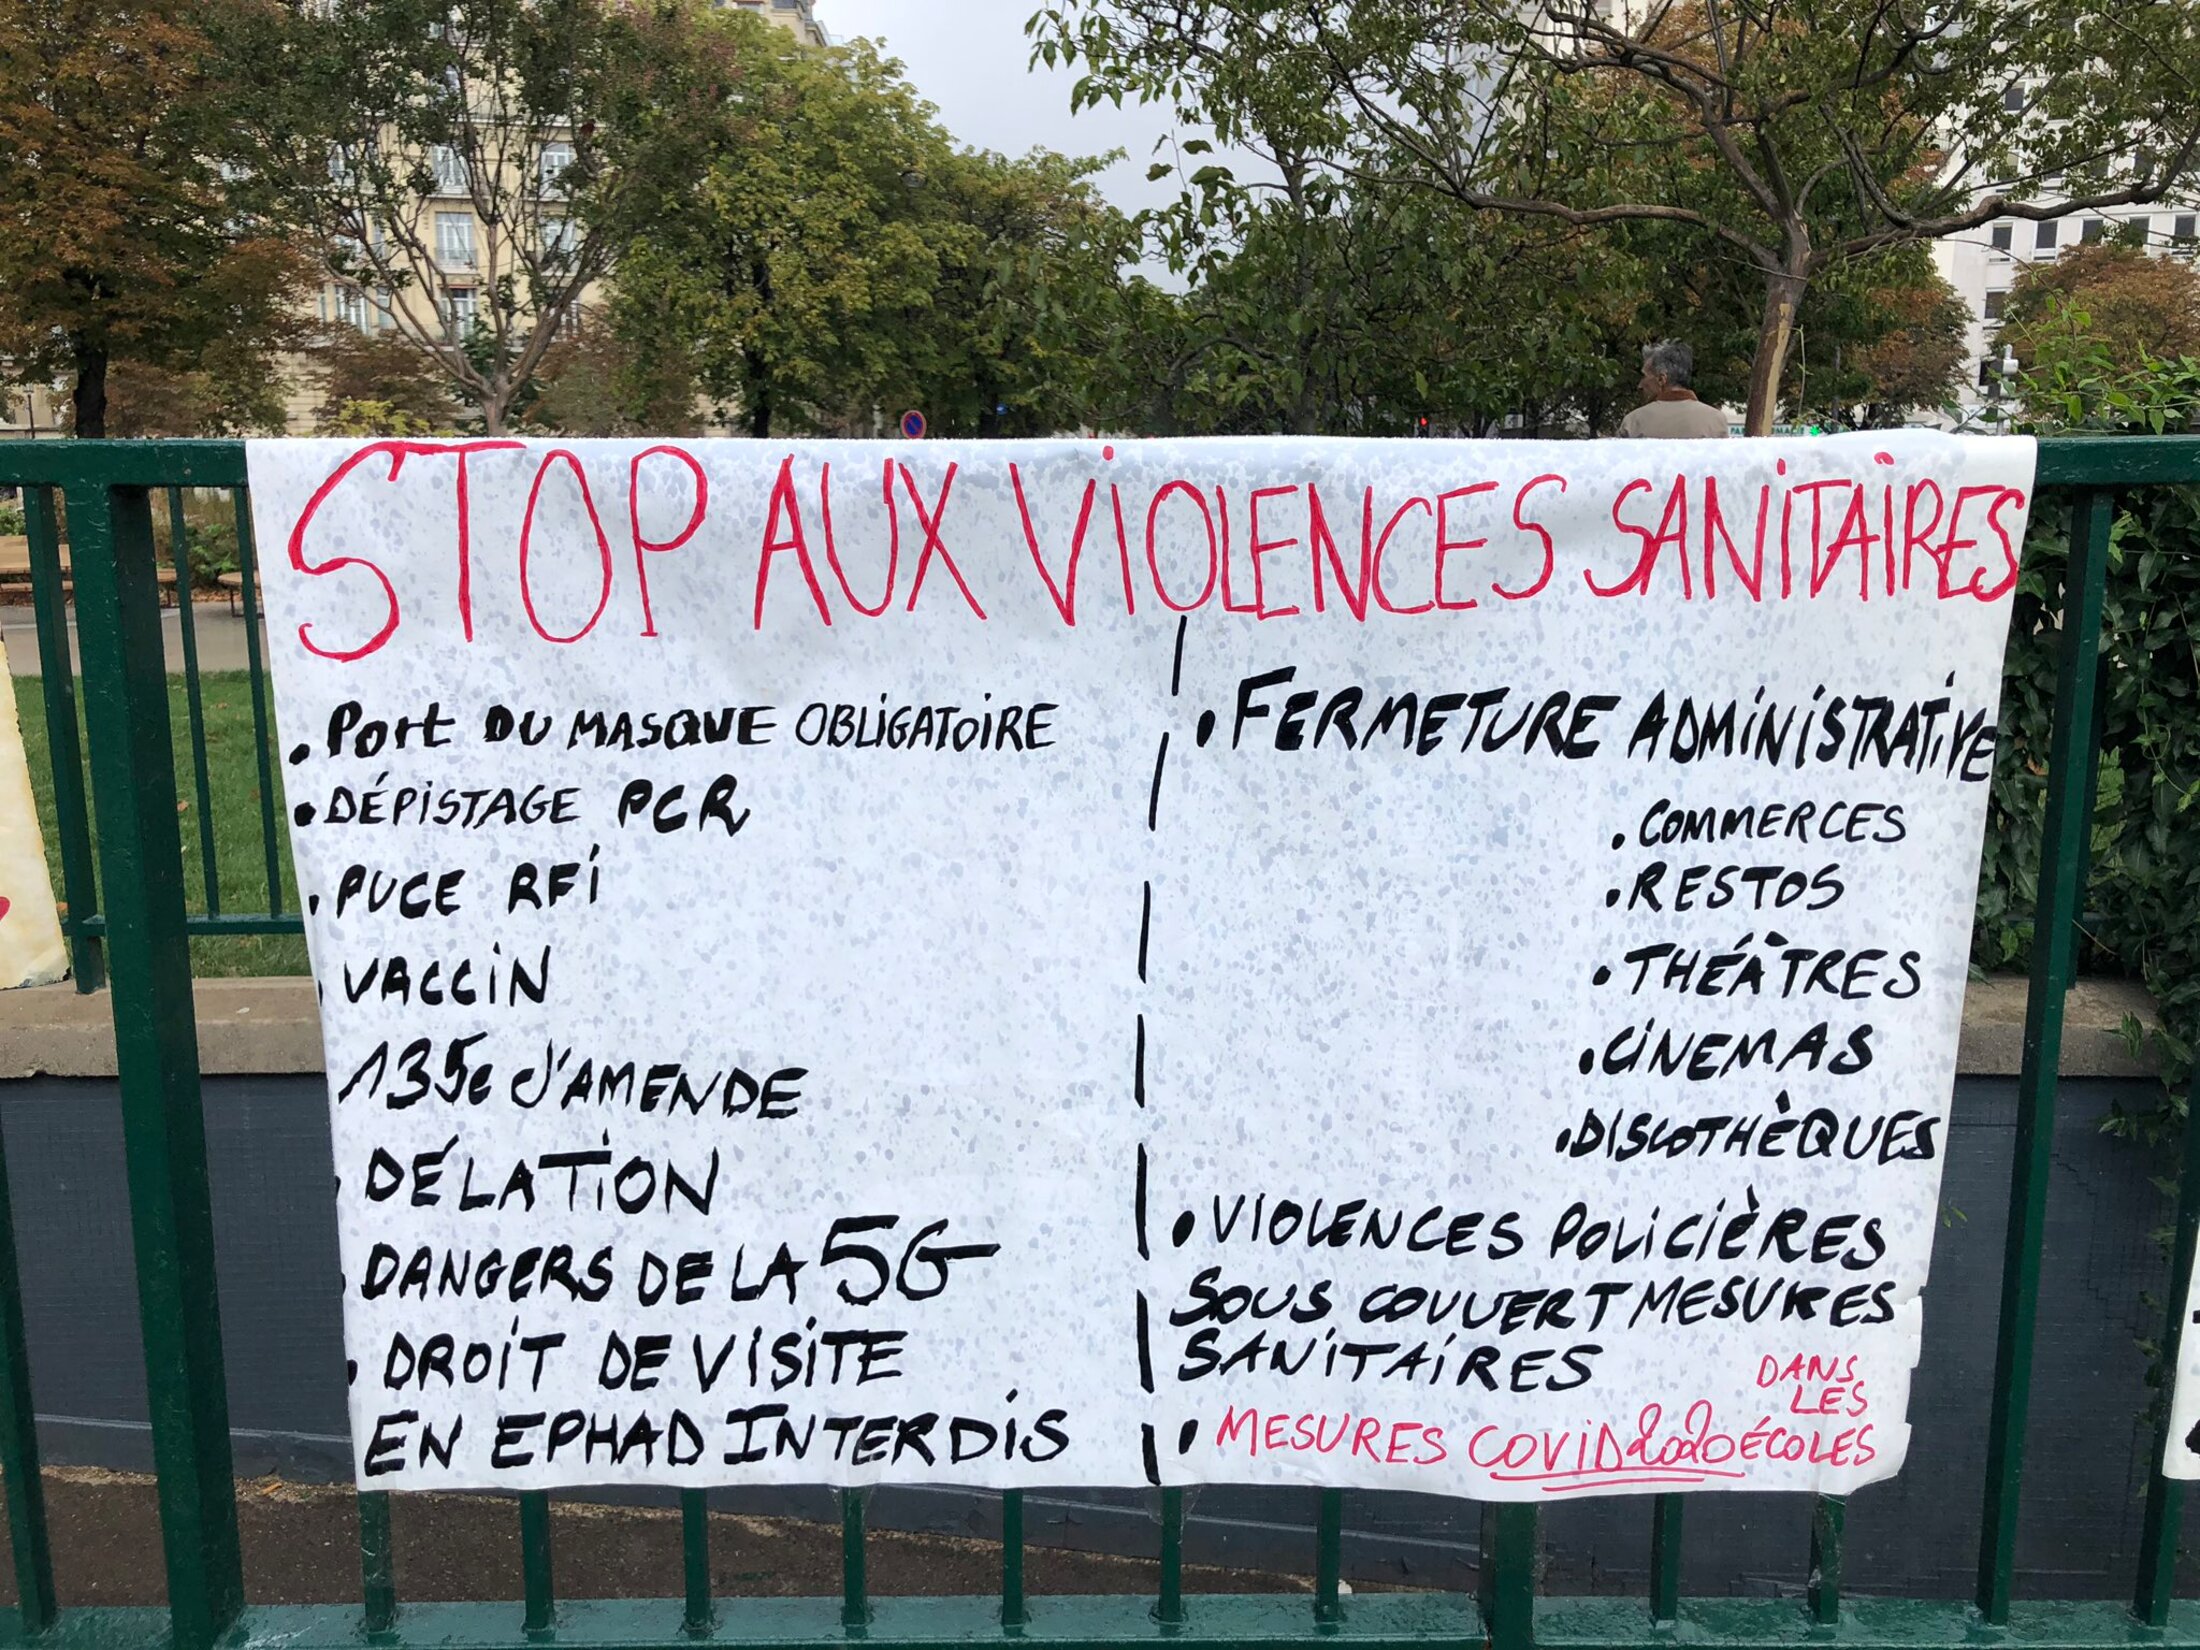 STOP AUX VIOLENCES SANITAIRES
. PORT DU MASQUE OBLIGATOIRE
. DÉPISTAGE PCR
. PUCE RFI
. VACCIN
135e d'AMENDE
. DÉLATION
. DANGERS DE LA 5G
. DROIT DE VISITE
EN EPHAD INTERDIS
. FERMETURE ADMINISTRATIVE
. COMMERCES
. RESTOS
. THÉÂTRES
. CINEMAS
. DISCOTHÈQUES
. VIOLENCES POLICIÈRES
SOUS COUVERT MESURES
SANITAIRES
. MESURES COVID 2020 DANS
LES
ÉCOLES